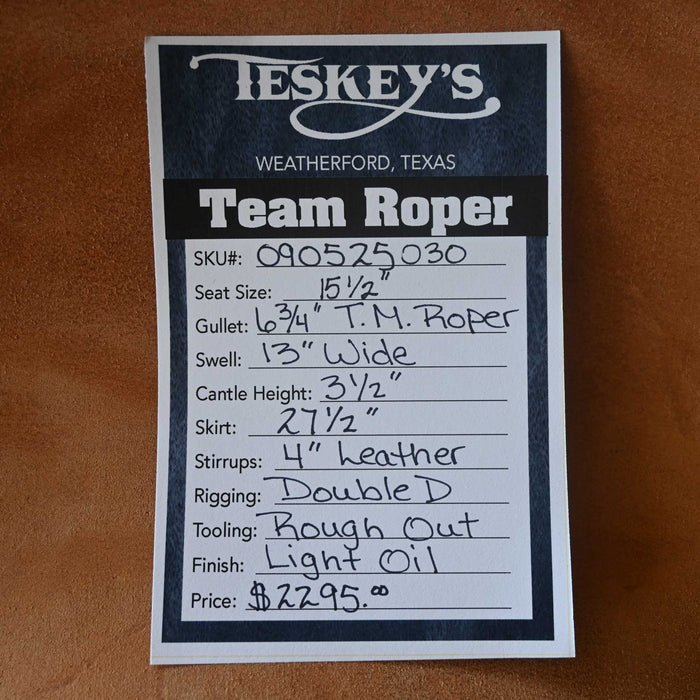 TESKEY'S
WEATHERFORD, TEXAS
Team Roper
SKU#: 090525030
Seat Size: 15 1/2"
Gullet: 6 3/4" T.M. Roper
Swell: 13" Wide
Cantle Height: 3 1/2"
Skirt: 27 1/2"
Stirrups: 4" Leather
Rigging: Double D
Tooling: Rough Out
Finish: Light Oil
Price: $2295.00